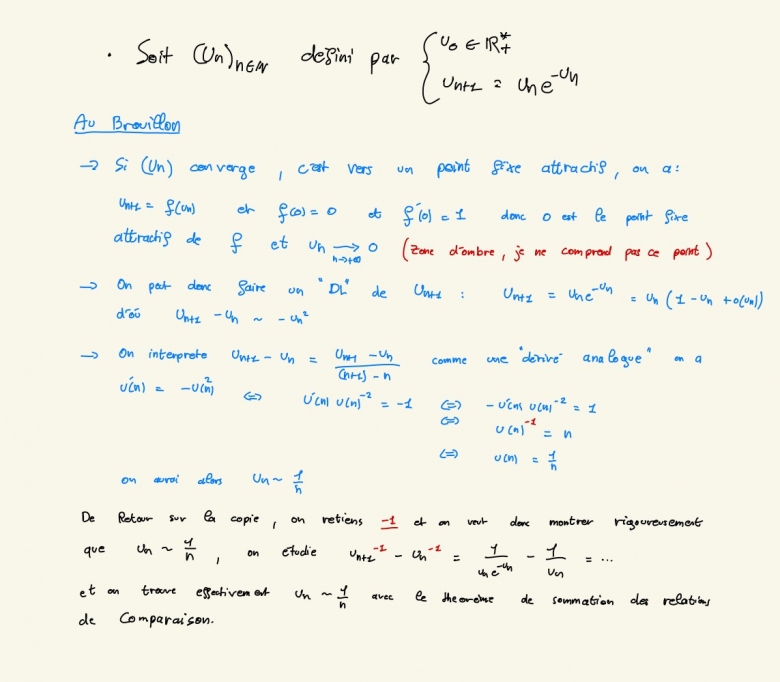 • Soit (Un)n∈ℕ defini par { U0 ∈ ℝ*+
Un+1 = Un e^-Un
Au Brouillon
→ Si (Un) converge, c'est vers un point fixe attractif, on a :
Un+1 = f(Un) et f(0) = 0 et f'(0) = 1 donc 0 est le point fixe
attractif de f et Un ⟶ 0 (Zone d'ombre, je ne comprend pas ce point)
n→+∞
→ On peut donc faire un "DL" de Un+1 : Un+1 = Un e^-Un = Un (1 - Un + o(Un))
d'où Un+1 - Un ~ - Un²
→ On interprete Un+1 - Un = (Un+1 - Un)/((n+1) - n) comme une "dérivé analogue" on a
U'(n) = -U(n)² ⟺ U'(n) U(n)^-2 = -1 ⟺ - U'(n) U(n)^-2 = 1
⟺ U(n)^-1 = n
⟺ U(n) = 1/n
on aurai alors Un ~ 1/n
De Retour sur la copie, on retiens -1 et on veut donc montrer rigoureusement
que Un ~ 1/n, on étudie Un+1^-1 - Un^-1 = 1/(Un e^-Un) - 1/Un = ...
et on trouve effectivement Un ~ 1/n avec le theorème de sommation des relations
de Comparaison.